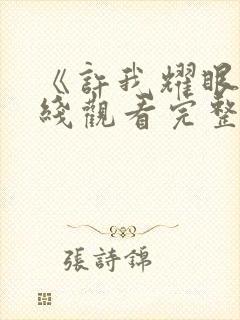 《許我耀眼
綫觀看完整
張詩錦